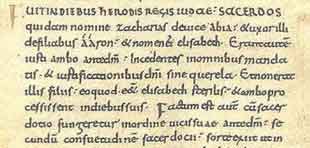 FUIT IN DIEBUS HERODIS REGIS IUDAEAE · SACERDOS
quidam nomine zacharias deuice abia · & uxor illi
de filiabus aaron · & nomen ei elisabeth · Erant autem
iusti ambo ante dm̄ · Incedentes in omnibus manda
tis · & iustificationibus dn̄i sine querela · Et non erat
illis filius · eo quod ess& elisabeth sterilis · & ambo pro
cessissent in diebus suis · Factum est aut̄ cū sacer
dotio fungeretur in ordine uicis suae ante dm̄ · se
cundū consuetudinē sacerdotii · sorte exiit ut in